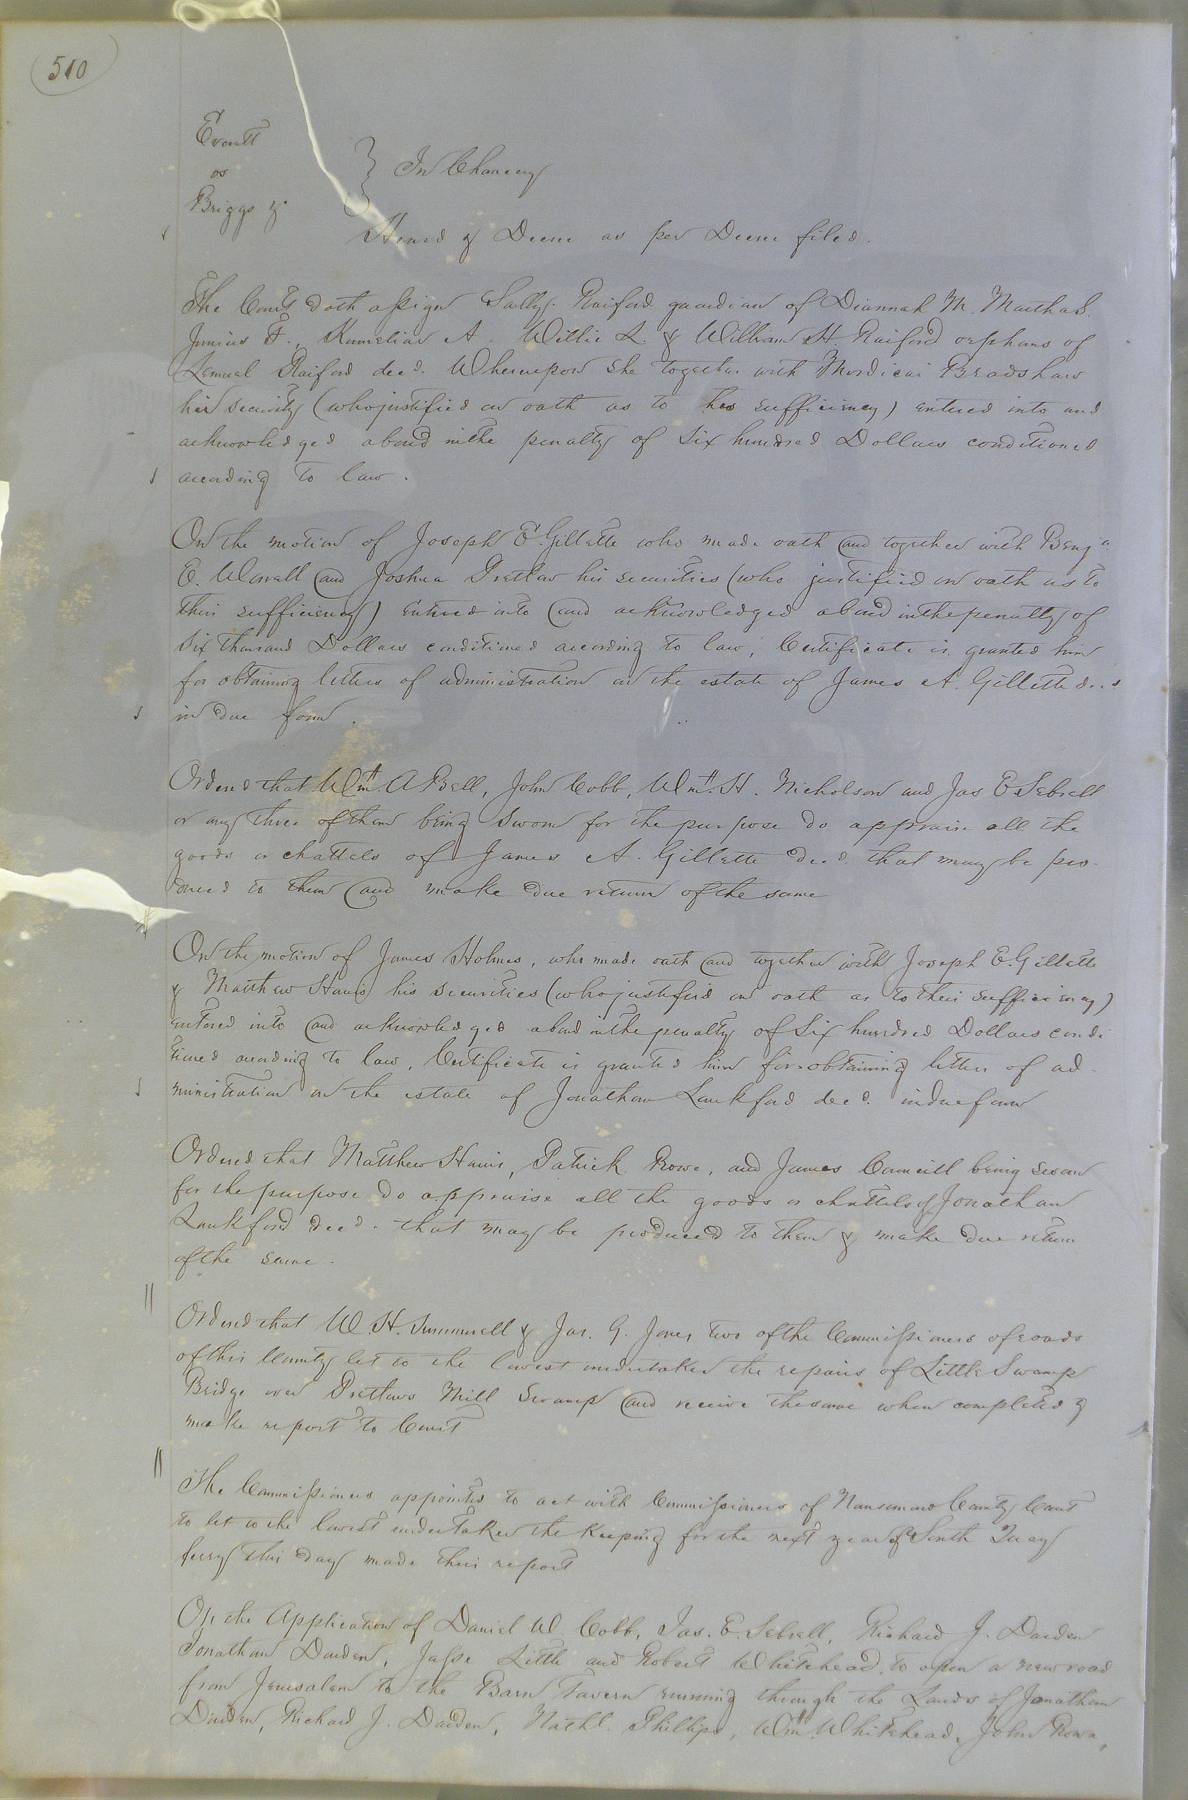 510
Everitt
vs
Briggs &
} In Chancery
Heard & Decree as per Decree filed.
The Court doth assign Sally Raiford guardian of Diannah M. Martha S.
Junius F., A. Willie L. & William H. Raiford orphans of
Lemuel Raiford decd. Whereupon she together with Mordicai Bradshaw
her security (who justified on oath as to his sufficiency) entered into and
acknowledged a bond in the penalty of Six hundred Dollars conditioned
according to law.
On the motion of Joseph E. Gillette who made oath and together with Benja
E. Worrell and Joshua Pretlow his securities (who justified on oath as to
their sufficiency) entered into and acknowledged a bond in the penalty of
Six thousand Dollars conditioned according to law, Certificate is granted him
for obtaining letters of administration on the estate of James A. Gillette decd
in due form.
Ordered that Wm. A Bell, John Cobb, Wm. H. Nicholson and Jas E Sebrell
or any three of them being sworn for the purpose do appraise all the
goods or chattels of James A. Gillette decd. that may be pro-
duced to them and make due return of the same
On the motion of James Holmes, who made oath and together with Joseph E. Gillette
& Matthew Harris his securities (who justified on oath as to their sufficiency)
entered into and acknowledged a bond in the penalty of Six hundred Dollars condi
tioned according to law, Certificate is granted him for obtaining letters of ad-
ministration on the estate of Jonathan Lankford decd. in due form
Ordered that Matthew Harris, Patrick Rowe, and James Councill being sworn
for the purpose do appraise all the goods or chattels of Jonathan
Lankford decd. that may be produced to them & make due return
of the same.
Ordered that W. H. Summerell & Jas. G. Jones two of the Commissioners of roads
of this County let to the lowest undertaker the repairs of Little Swamp
Bridge over Pretlows Mill Swamp and receive the same when completed &
make report to Court
The Commissioners appointed to act with Commissioners of Nansemond County Court
to let to the lowest undertaker the keeping for the next year of South Quay
ferry this day made their report
On the Application of Daniel W. Cobb, Jas. E. Sebrell, Richard J. Darden
Jonathan Darden, Jesse Little and Robert Whitehead, to open a new road
from Jerusalem to the Barn Tavern running through the Lands of Jonathan
Darden, Richard J. Darden, Nathl. Phillips, Wm. Whitehead, John Rowe,